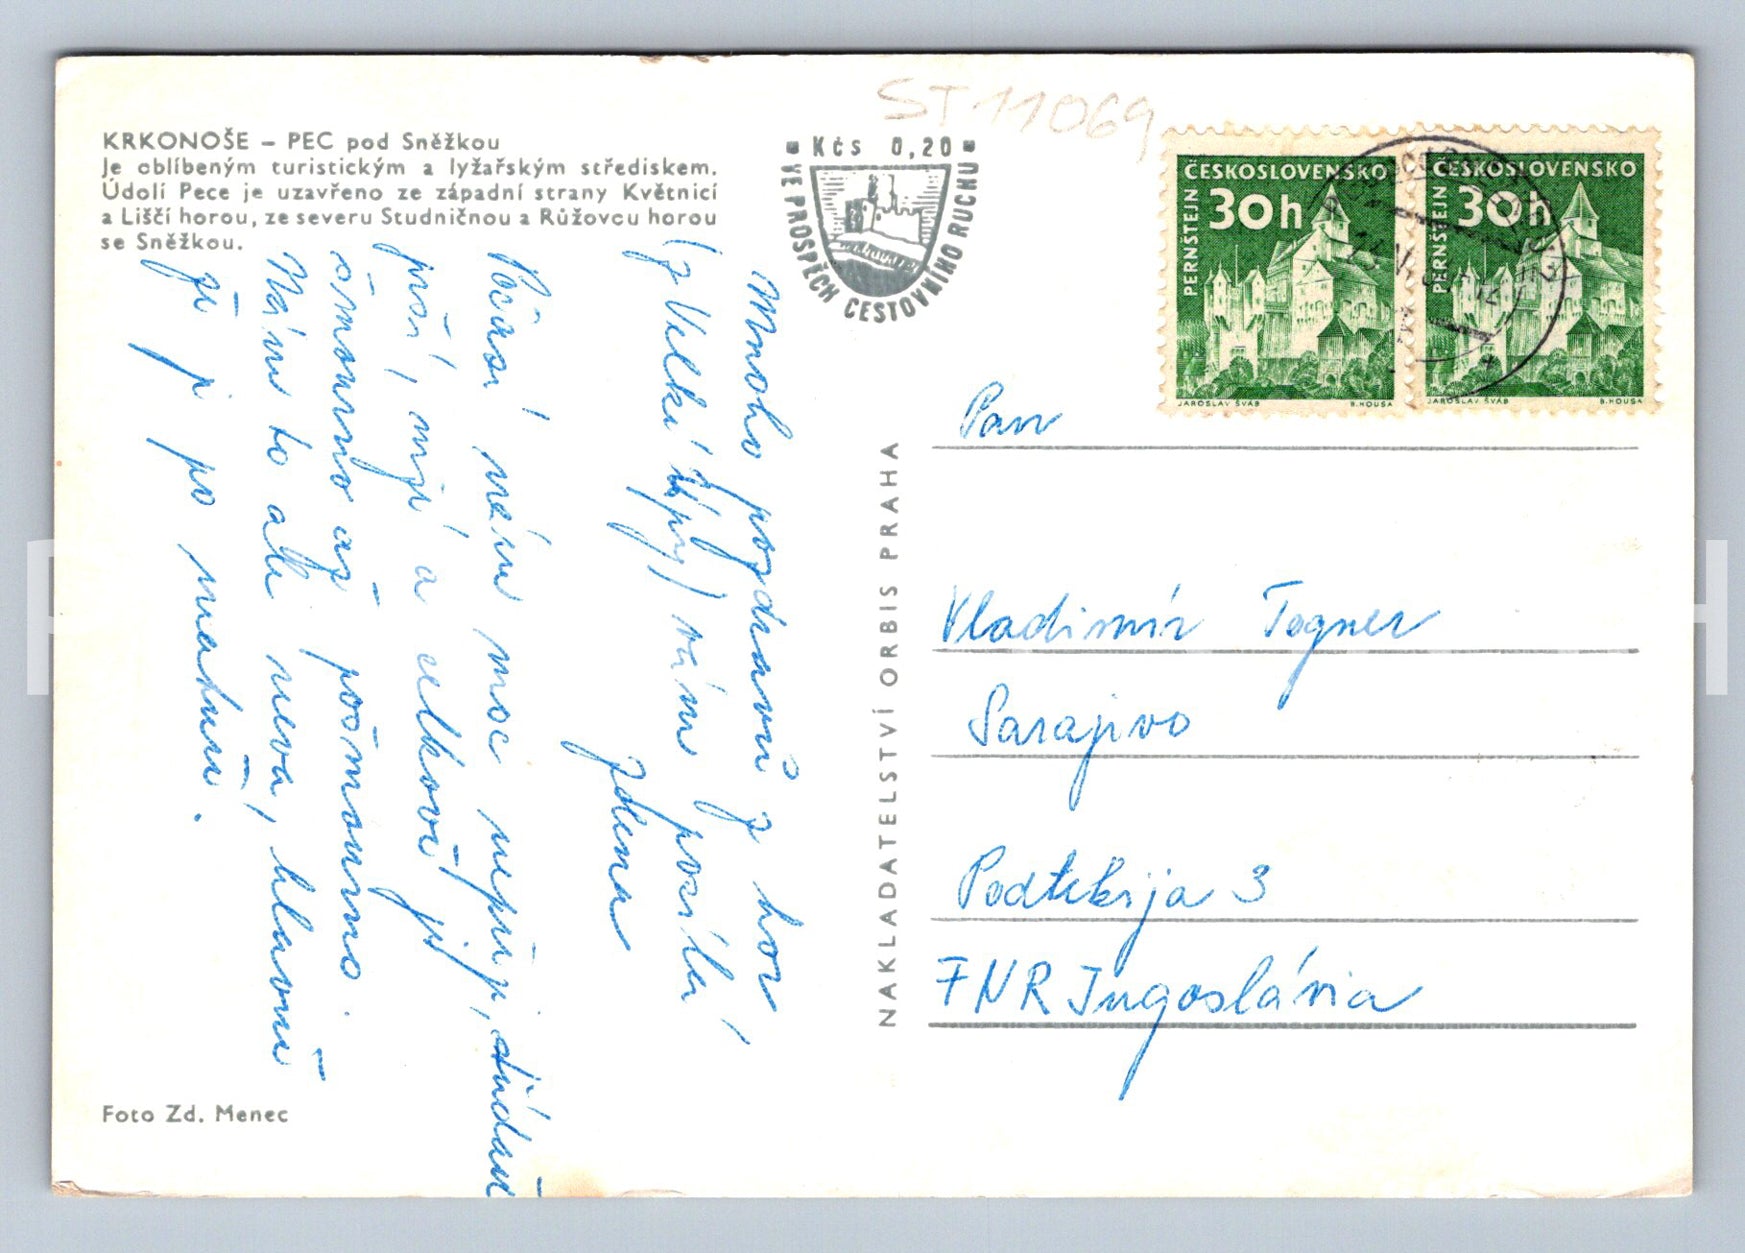 ST 11069
KRKONOŠE – PEC pod Sněžkou
Je oblíbeným turistickým a lyžařským střediskem.
Údolí Pece je uzavřeno ze západní strany Květnicí
a Liščí horou, ze severu Studničnou a Růžovou horou
se Sněžkou.
Kčs 0,20
VE PROSPĚCH CESTOVNÍHO RUCHU
ČESKOSLOVENSKO
30h
PERNŠTEJN
JAROSLAV ŠVÁB B. HOUSA
ČESKOSLOVENSKO
30h
PERNŠTEJN
JAROSLAV ŠVÁB B. HOUSA
Mnoho pozdravů z hor
(z Velké Úpy) vám posílá
Počasí není moc
prší, mží a celkově je
šmonrno až pošmonrno.
Nám to ale nevá, hlavně
že je po
NAKLADATELSTVÍ ORBIS PRAHA
Pan
Vladimír Togner
Sarajevo
Podtekija 3
FNR Jugoslávia
Foto Zd. Menec